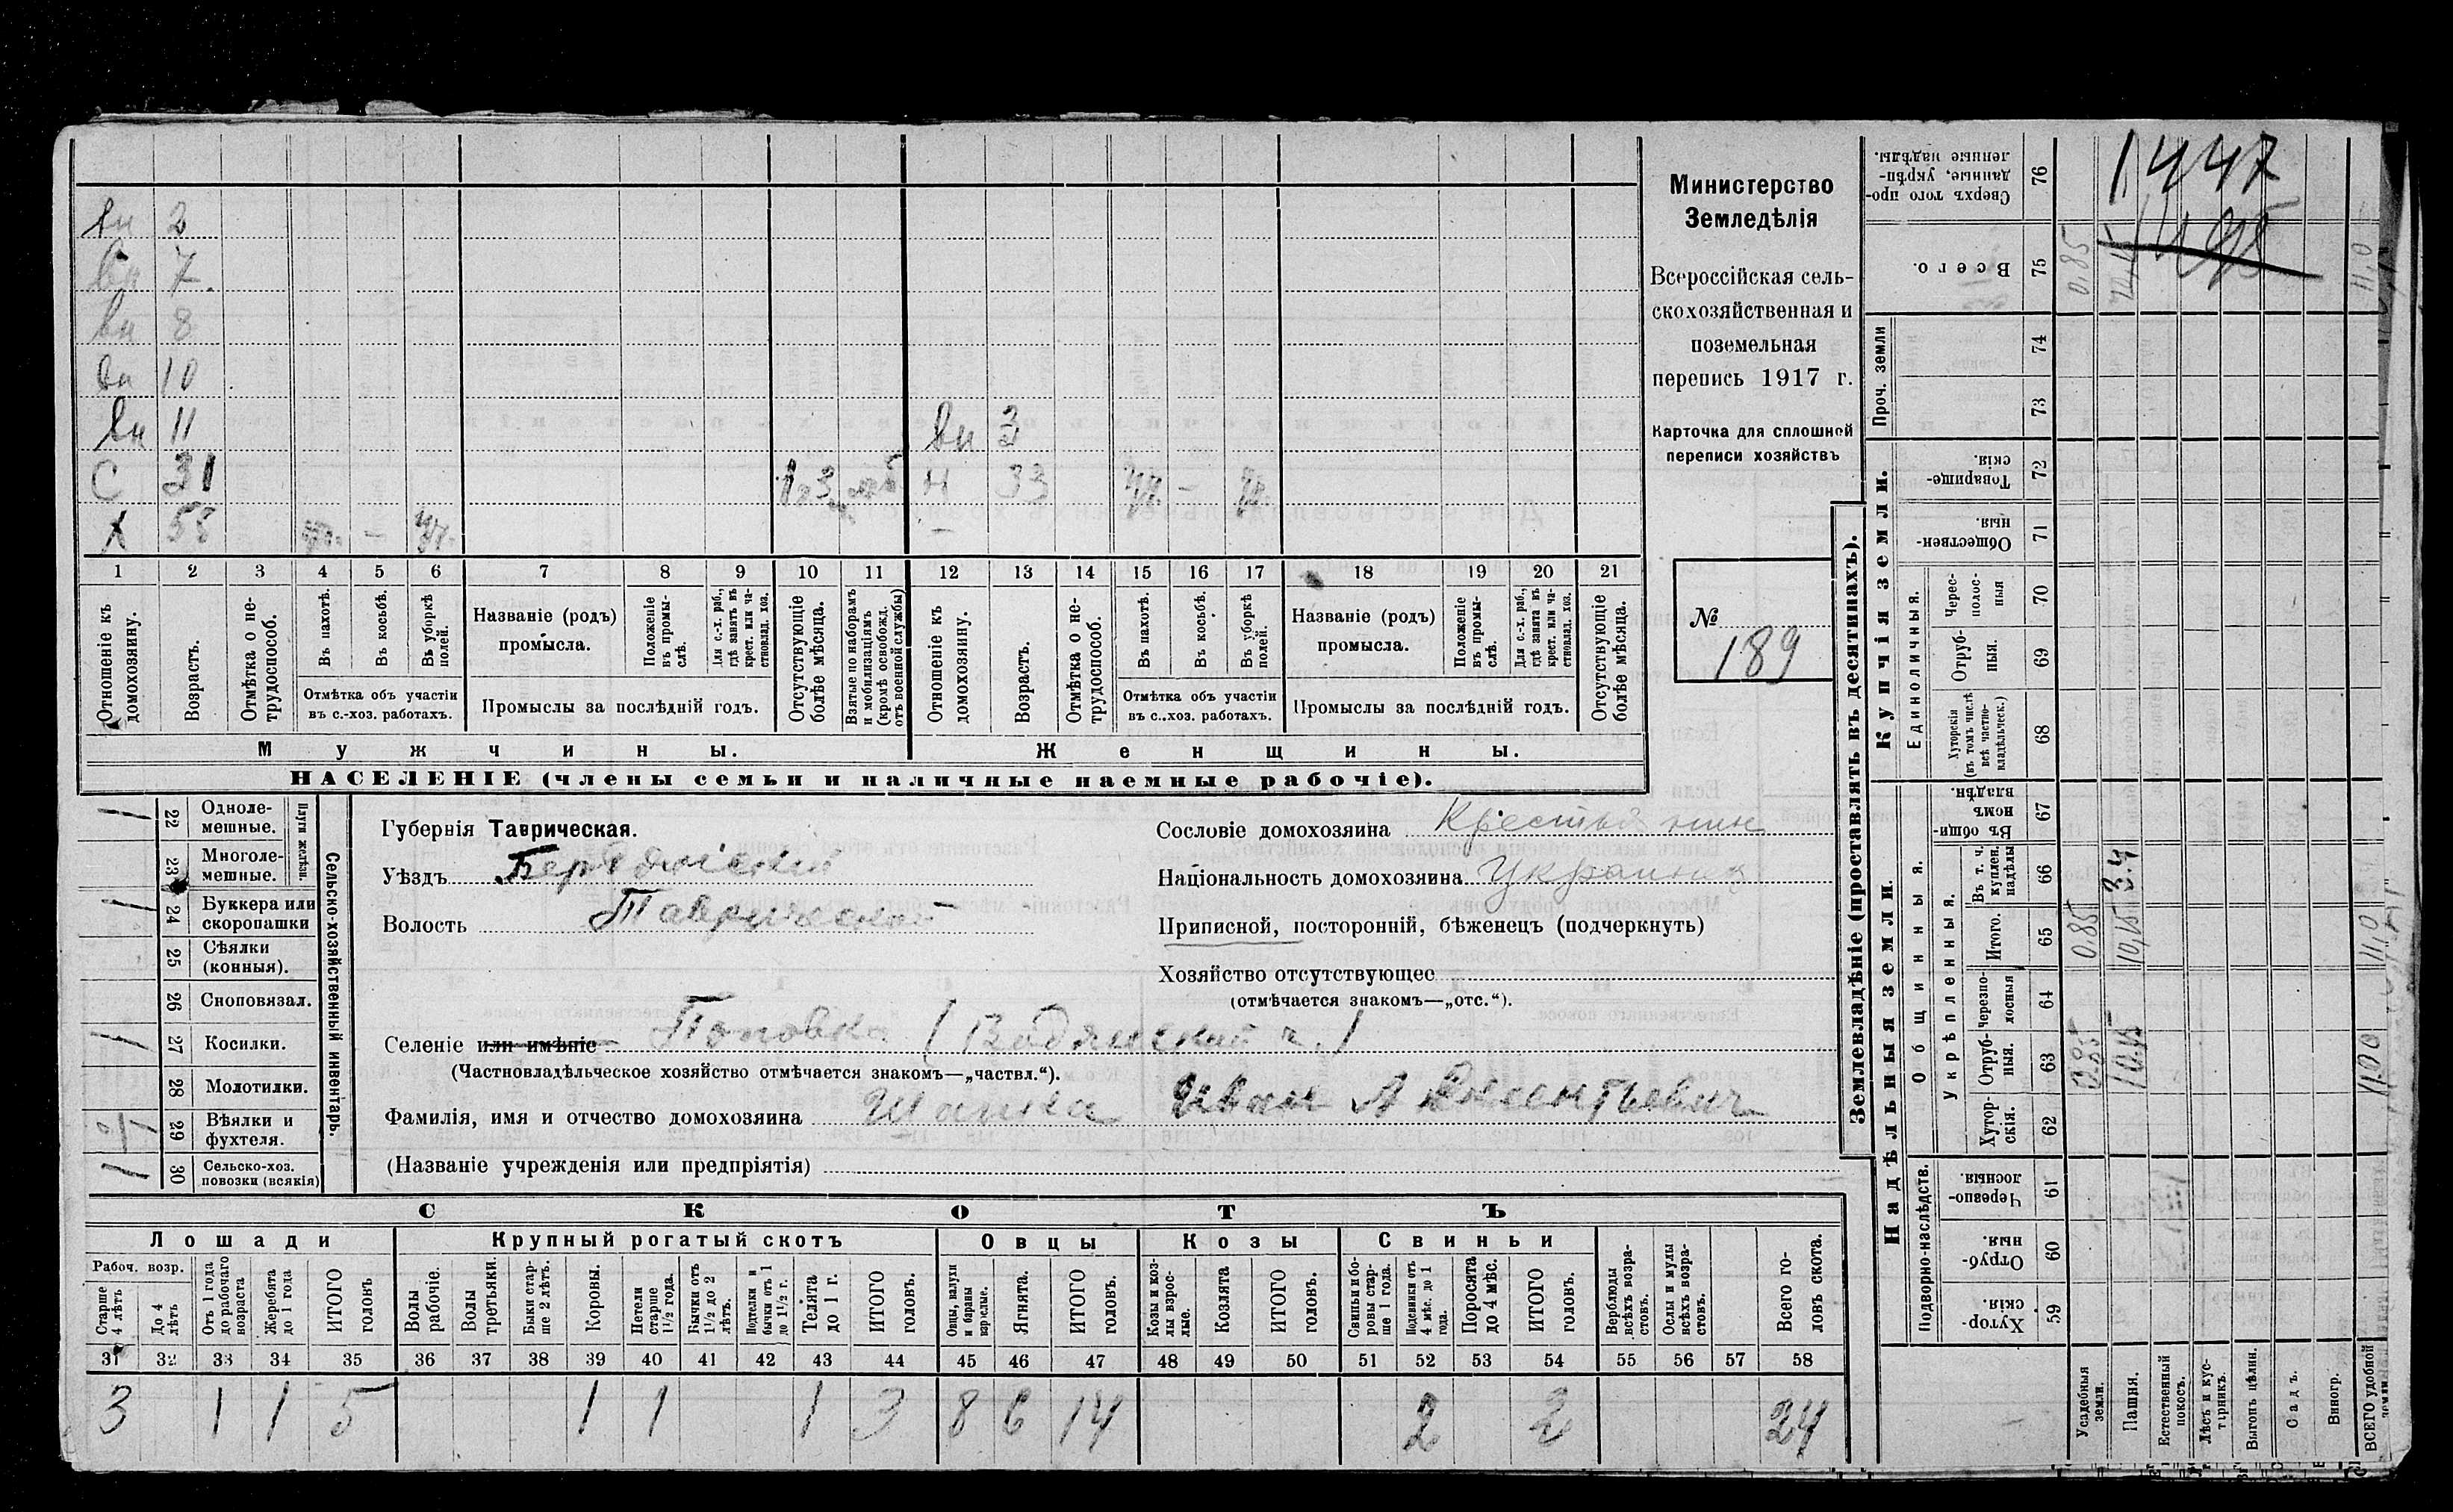 вн 2
вн 7
вн 8
вн 10
вн 11 вн 3
С 31 Н 33 уч. - уч.
Х 58 уч. - уч.
1 2 3 4 5 6 7 8 9 10 11 12 13 14 15 16 17 18 19 20 21
Отношеніе къ домохозяину.
Возрастъ.
Отмѣтка о нетрудоспособ.
Въ пахотѣ.
Въ косьбѣ.
Въ уборкѣ полей.
Отмѣтка объ участіи
въ с.-хоз. работахъ.
Названіе (родъ)
промысла.
Положеніе въ промыслѣ.
Для с.-х. раб., гдѣ занятъ въ крест. или частновлад. хоз.
Промыслы за послѣдній годъ.
Отсутствующіе болѣе мѣсяца.
Взятые по наборамъ и мобилизаціямъ (кромѣ освобожд. отъ военной службы)
Отношеніе къ домохозяину.
Возрастъ.
Отмѣтка о нетрудоспособ.
Въ пахотѣ.
Въ косьбѣ.
Въ уборкѣ полей.
Отмѣтка объ участіи
въ с..хоз. работахъ.
Названіе (родъ)
промысла.
Положеніе въ промыслѣ.
Для с.-х. раб., гдѣ занята въ крест. или частновлад. хоз.
Промыслы за послѣдній годъ.
Отсутствующіе болѣе мѣсяца.
Мужчины. Женщины.
НАСЕЛЕНІЕ (члены семьи и наличные наемные рабочіе).
Министерство
Земледѣлія
Всероссійская сель-
скохозяйственная и
поземельная
перепись 1917 г.
Карточка для сплошной
переписи хозяйствъ
№
189
1 22 Одноле-
мешные.
23 Многоле-
мешные.
Плуги желѣзн.
1 24 Буккера или
скоропашки
25 Сѣялки
(конныя).
26 Сноповязал.
1 27 Косилки.
28 Молотилки.
29 Вѣялки и
фухтеля.
1 30 Сельско-хоз.
повозки (всякія)
Сельско-хозяйственный инвентарь.
Губернія Таврическая.
Уѣздъ Бердянскій
Волость Таврическая
Селеніе или имѣніе Поповка (Водянский ч.)
(Частновладѣльческое хозяйство отмѣчается знакомъ—„частвл.“).
Фамилія, имя и отчество домохозяина Шапка Иван Авксентьевич
(Названіе учрежденія или предпріятія)
Сословіе домохозяина Крестьянин
Національность домохозяина Украинец
Приписной, посторонній, бѣженецъ (подчеркнуть)
Хозяйство отсутствующее
(отмѣчается знакомъ—„отс.“).
СКОТЪ
Лошади Крупный рогатый скотъ Овцы Козы Свиньи
Рабоч. возр.
Старше 4 лѣтъ
До 4 лѣтъ
Отъ 1 года до рабочаго возраста
Жеребята до 1 года
ИТОГО головъ
Волы рабочіе.
Волы третьяки.
Быки старше 2 лѣтъ.
Коровы.
Нетели старше 1½ года.
Бычки отъ 1½ до 2 лѣтъ.
Подтелки и бычки отъ 1 до 1½ г.
Телята до 1 г.
ИТОГО головъ.
Овцы, валухи и бараны взрослые.
Ягнята.
ИТОГО головъ.
Козы и козлы взрослые.
Козлята
ИТОГО головъ.
Свиньи и боровы старше 1 года.
Подсвинки отъ 4 мѣс. до 1 года.
Поросята до 4 мѣс.
ИТОГО головъ.
Верблюды всѣхъ возрастовъ.
Ослы и мулы всѣхъ возрастовъ.
Всего головъ скота.
31 32 33 34 35 36 37 38 39 40 41 42 43 44 45 46 47 48 49 50 51 52 53 54 55 56 57 58
3 1 1 5 1 1 1 3 8 6 14 2 2 24
Землевладѣніе (проставлять въ десятинахъ).
Надѣльныя земли. Купчія земли. Проч. земли
Подворно-наслѣдств. Общинныя. Единоличныя.
Укрѣпленныя.
Хуторскія. 59
Отрубныя. 60
Черезполосныя. 61
Хуторскія. 62
Отрубныя. 63
Черезполосныя 64
Итого. 65
Въ т. ч. куплен. надѣлы 66
Въ общинномъ владѣн. 67
Хуторскія (въ томъ числѣ всѣ частновладѣльческ.) 68
Отрубныя. 69
Чересполосныя 70
Общественныя. 71
Товарищескія. 72
73
74
Всего. 75
Сверхъ того проданные, укрѣпленные надѣлы. 76
1447
Усадебныя земли. 0.85 0.85 0.85
Пашня. 10.15 10,15 3.4
Естественный покосъ.
Лѣсъ и кустарникъ.
Выгонъ цѣлин.
Садъ.
Виногр.
ВСЕГО удобной земли 11.00 11.0 11.0